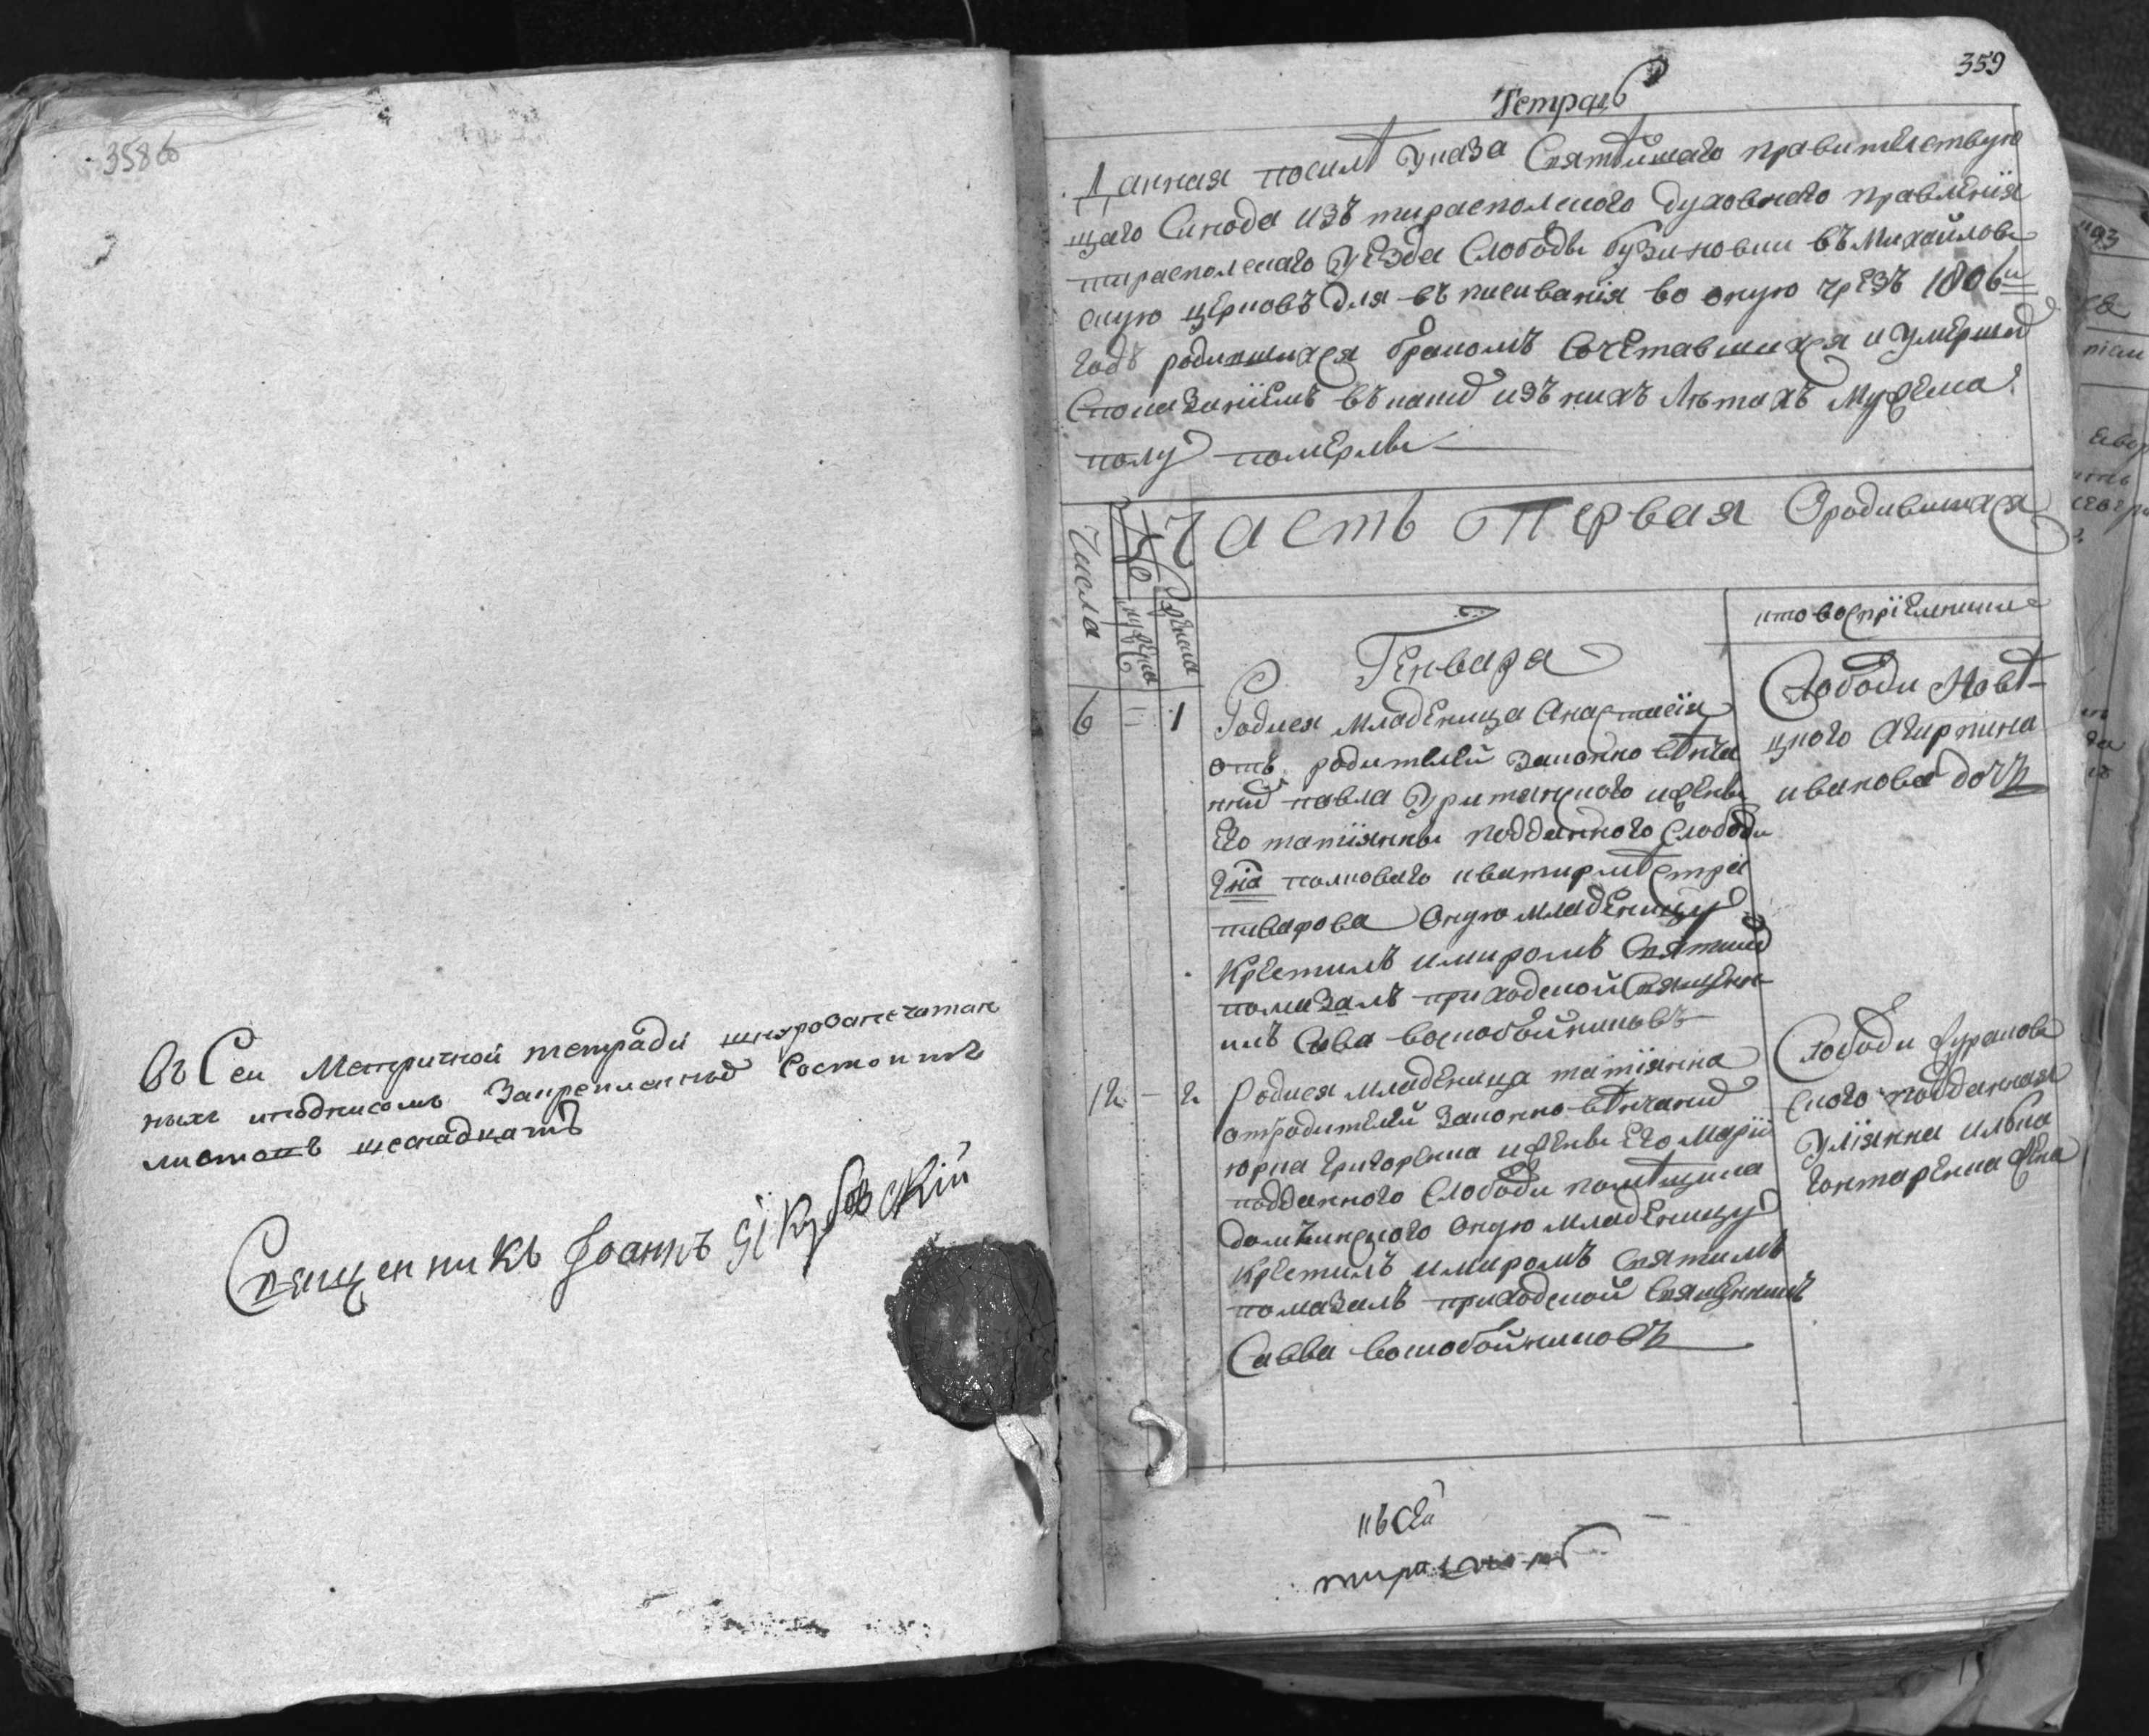 358об
Въ Сеи Метричной тетради шнурозапечатан
ныхъ иподписомъ Закрепленныхъ Состоитъ
листовъ шеснадцать
Священникъ Іоаннъ
359
Тетрадь
Данная посилѣ Указа Святѣйшаго правительствую
щаго Синода изъ тираспольского духовнаго правленія
тираспольскаго Уѣзда Слободы бузиновки въ Михайловс
кую церковь для въписиванія во оную чрезъ 1806й
годъ родившихся бракомъ Сочетавшихся и Умершихъ
Спо­казаніемъ въ какихъ изъ нихъ лѣтахъ Мужеска
полу померлы
Числа
мужеска
женска
Часть Первая Ородившихся
Генваря
кто воспріемники
6 = 1 Родися младеница Анастасія
отъ родителей Законно вѣнча
нихъ павла Уритянского ижены
Его татіянны подданного Слободи
Гна полковаго кватирмѣстра
пиварова Оную младеницу
Крестилъ имиромъ Святимъ
помазалъ приходской Священни
къ Сава воскобойниковъ
Слободи Новѣ-
цкого Агирпина
иванова дочъ
12 - 2 Родися младеница татіянна
отродителей Законно вѣнчаних
юрка григоренка ижены Его Маріи
подданного Слободи помѣщика
Оную младеницу
Крестилъ имиромъ Святимъ
помазалъ приходской Священникъ
Савва воскобойниковъ
Слободи Куракове
ского подданная
Уліянна илькa
гонтаренка жена